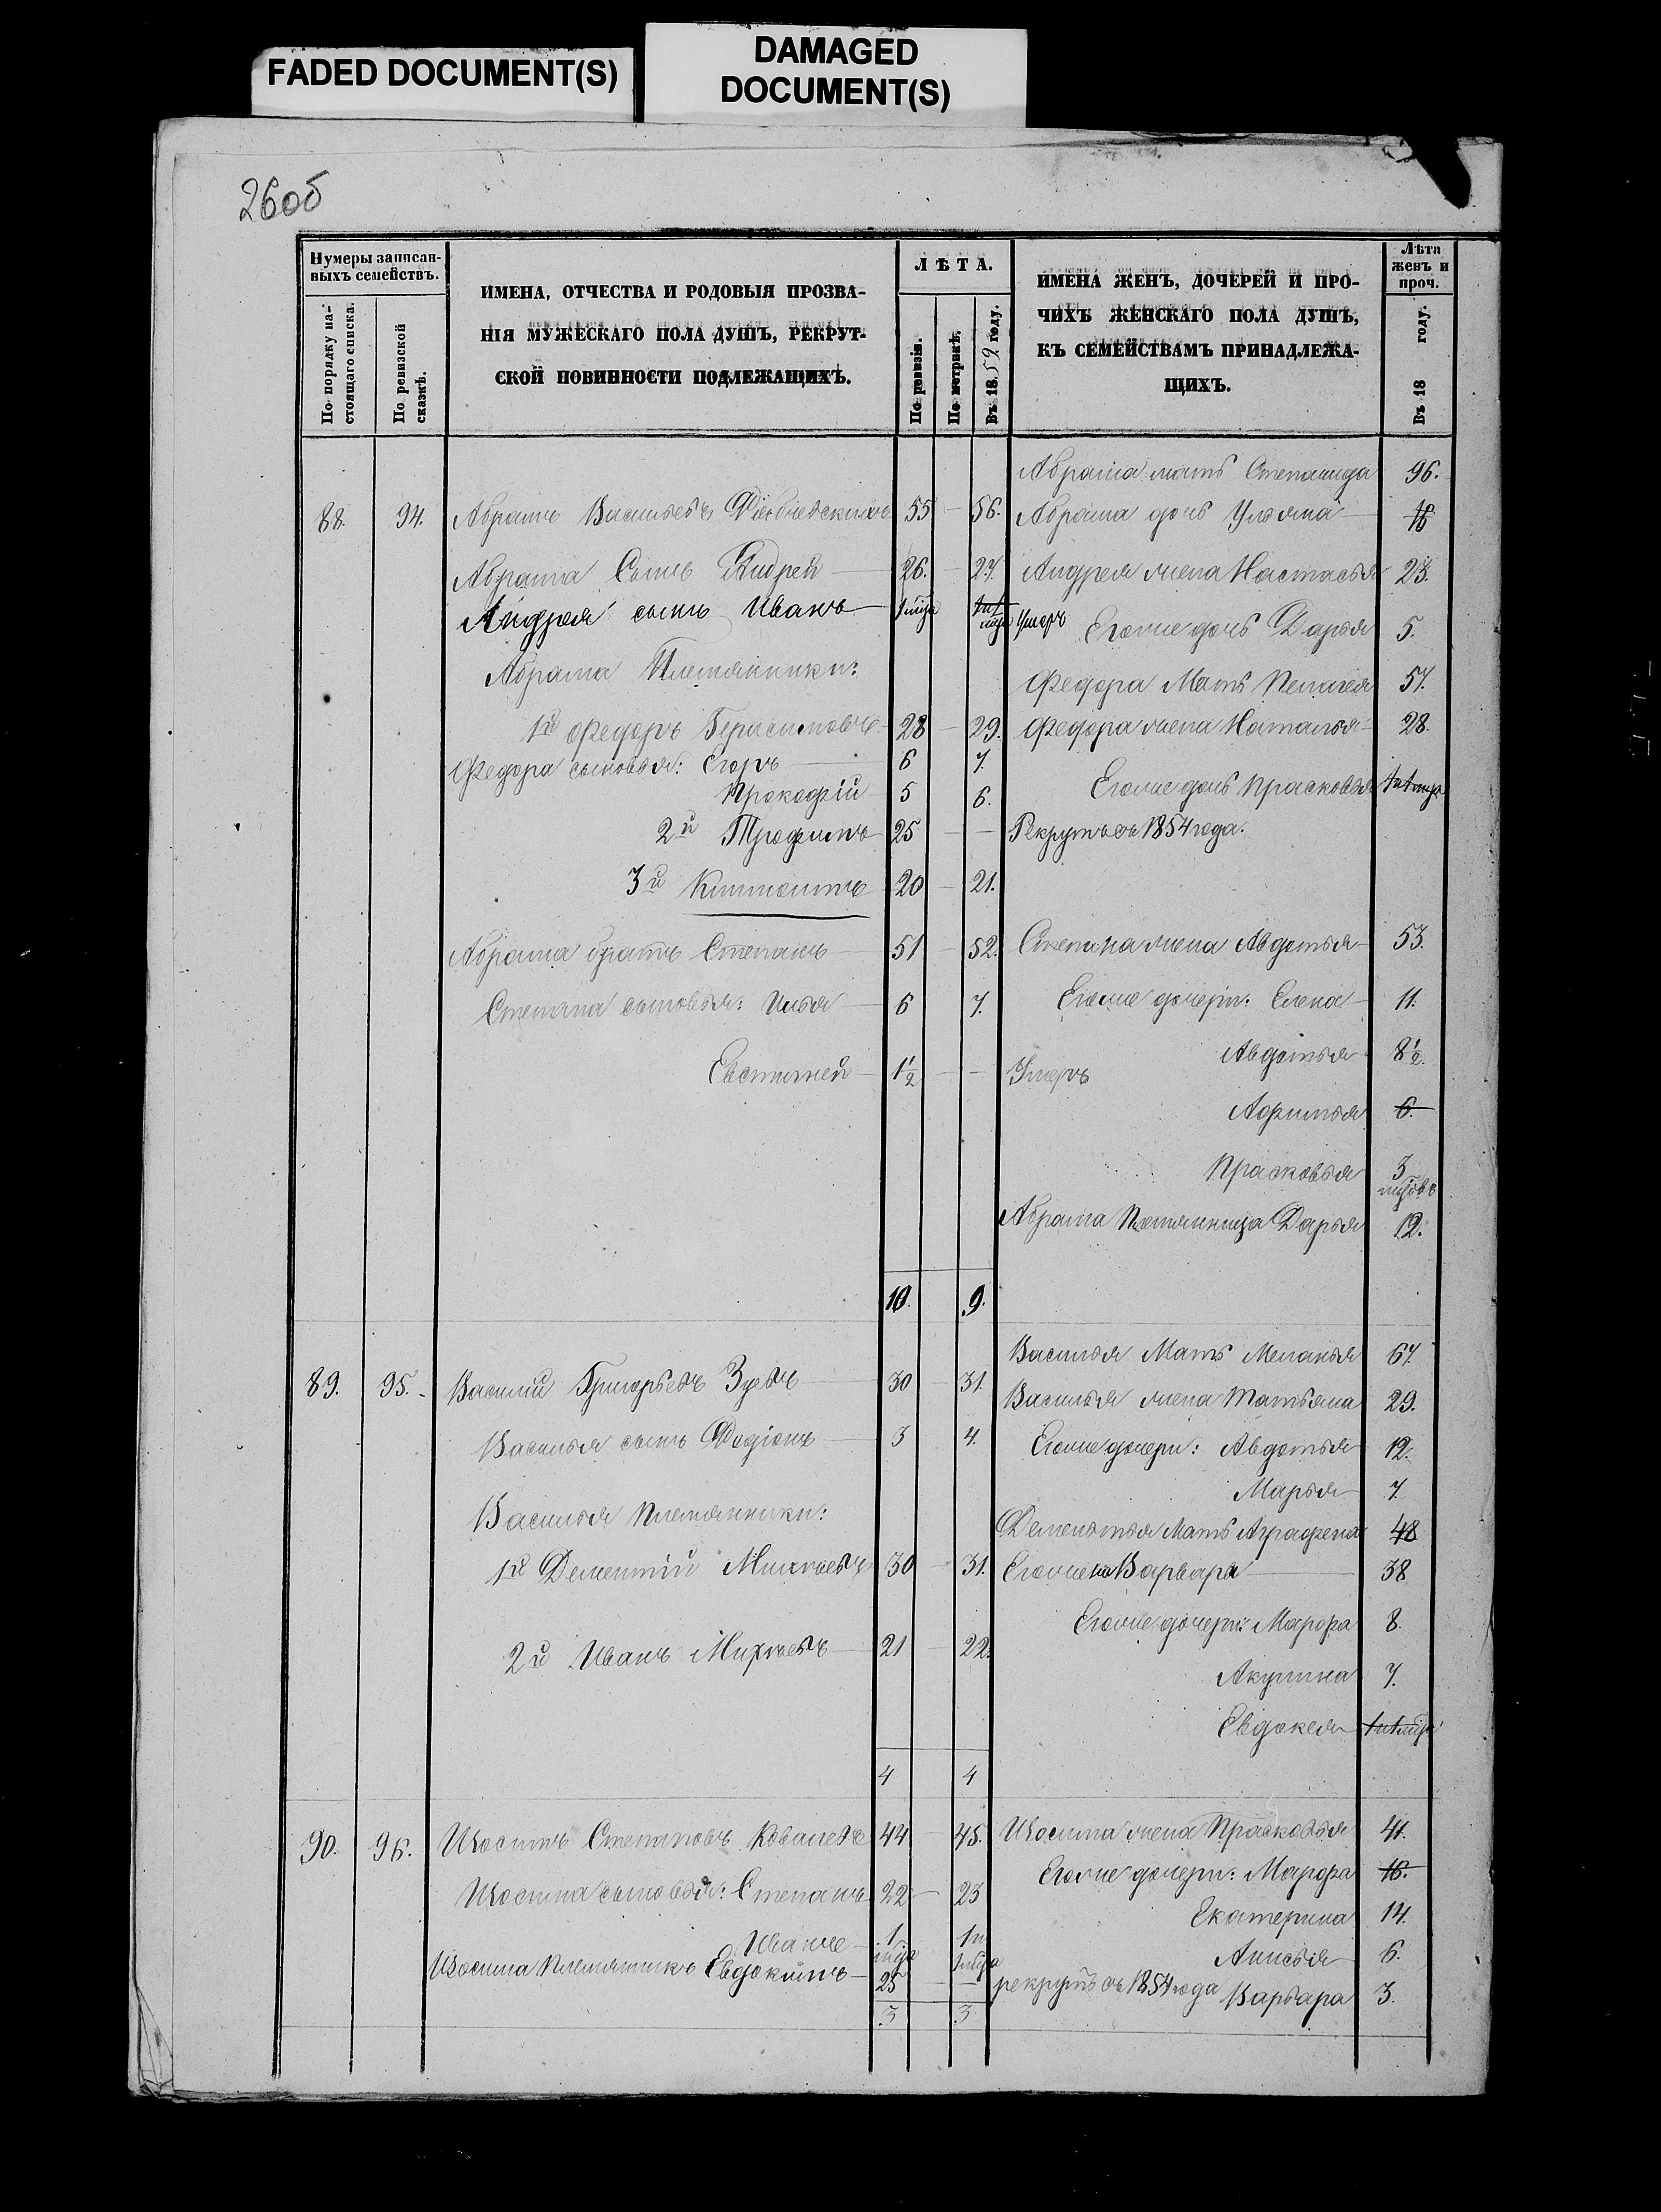 FADED DOCUMENT(S)
DAMAGED
DOCUMENT(S)
26об
Нумеры записан-
ныхъ семействъ.
По порядку на-
стоящаго списка.
По ревизской
сказкѣ.
ИМЕНА, ОТЧЕСТВА И РОДОВЫЯ ПРОЗВА-
НІЯ МУЖЕСКАГО ПОЛА ДУШЪ, РЕКРУТ-
СКОЙ ПОВИННОСТИ ПОДЛЕЖАЩИХЪ.
ЛѢТА.
По ревизіи.
По метрикѣ.
Въ 1859 году.
ИМЕНА ЖЕНЪ, ДОЧЕРЕЙ И ПРО-
ЧИХЪ ЖЕНСКАГО ПОЛА ДУШЪ,
КЪ СЕМЕЙСТВАМЪ ПРИНАДЛЕЖА-
ЩИХЪ.
Лѣта
женъ и
проч.
Въ 18 году.
Абрама мать Степанида 96.
88. 94. Абрамъ Васильевъ 55 — 56. Абрама дочь Ульяна 16
Абрама Сынъ Андрей 26. — 27. Андрея жена Настасья 23.
Андрея сынъ Иванъ Умеръ
Егоже дочь Дарья 5.
Абрама Племянники: Федора Мать Пелагея 57.
1й Федоръ Герасимовъ 28 — 29. Федора жена Наталья 28.
Федора сыновья: Егоръ 6 7.
Егоже дочь Прасковья
Прокофій 5 6.
2й Трофимъ 25 — — Рекрутъ съ 1854 года.
3й 20 — 21.
Абрама братъ Степанъ 51 — 52. Степана жена Авдотья 53.
Степана сыновья: Илья 6 7. Егоже дочери: Елена 11.
Авдотья 8 1/2.
Евстигней 1 1/2 — — Умеръ
6.
Прасковья 3
Абрама Племянница Дарья 12.
10. 9.
Василья Мать Меланья 67.
89. 95. Василій Григорьевъ Зуевъ 30 — 31.
Василья жена Татьяна 29.
Василья сынъ Родіонъ 3 4. Егоже дочери: Авдотья 12.
Марья 7.
Василья Племянники:
Дементья Мать Аграфена 48
1й Дементій Михѣевъ 30 — 31. Егоже жена Варвара 38
Егоже дочери: Марфа 8.
2й Иванъ Михѣевъ 21 — 22.
Акулина 7.
Евдокея
4 4
90. 96. Изосимъ Степановъ Ковалевъ 44 — 45. Изосима жена Прасковья 41.
Егоже дочери: Марфа 16.
Изосима сыновья: Степанъ 22 — 23
Екатерина 14.
Иванъ 1
Анисья 6.
Изосима Племянникъ Евдокимъ 25 — рекрутъ съ 1854 года
Варвара 3.
3 3